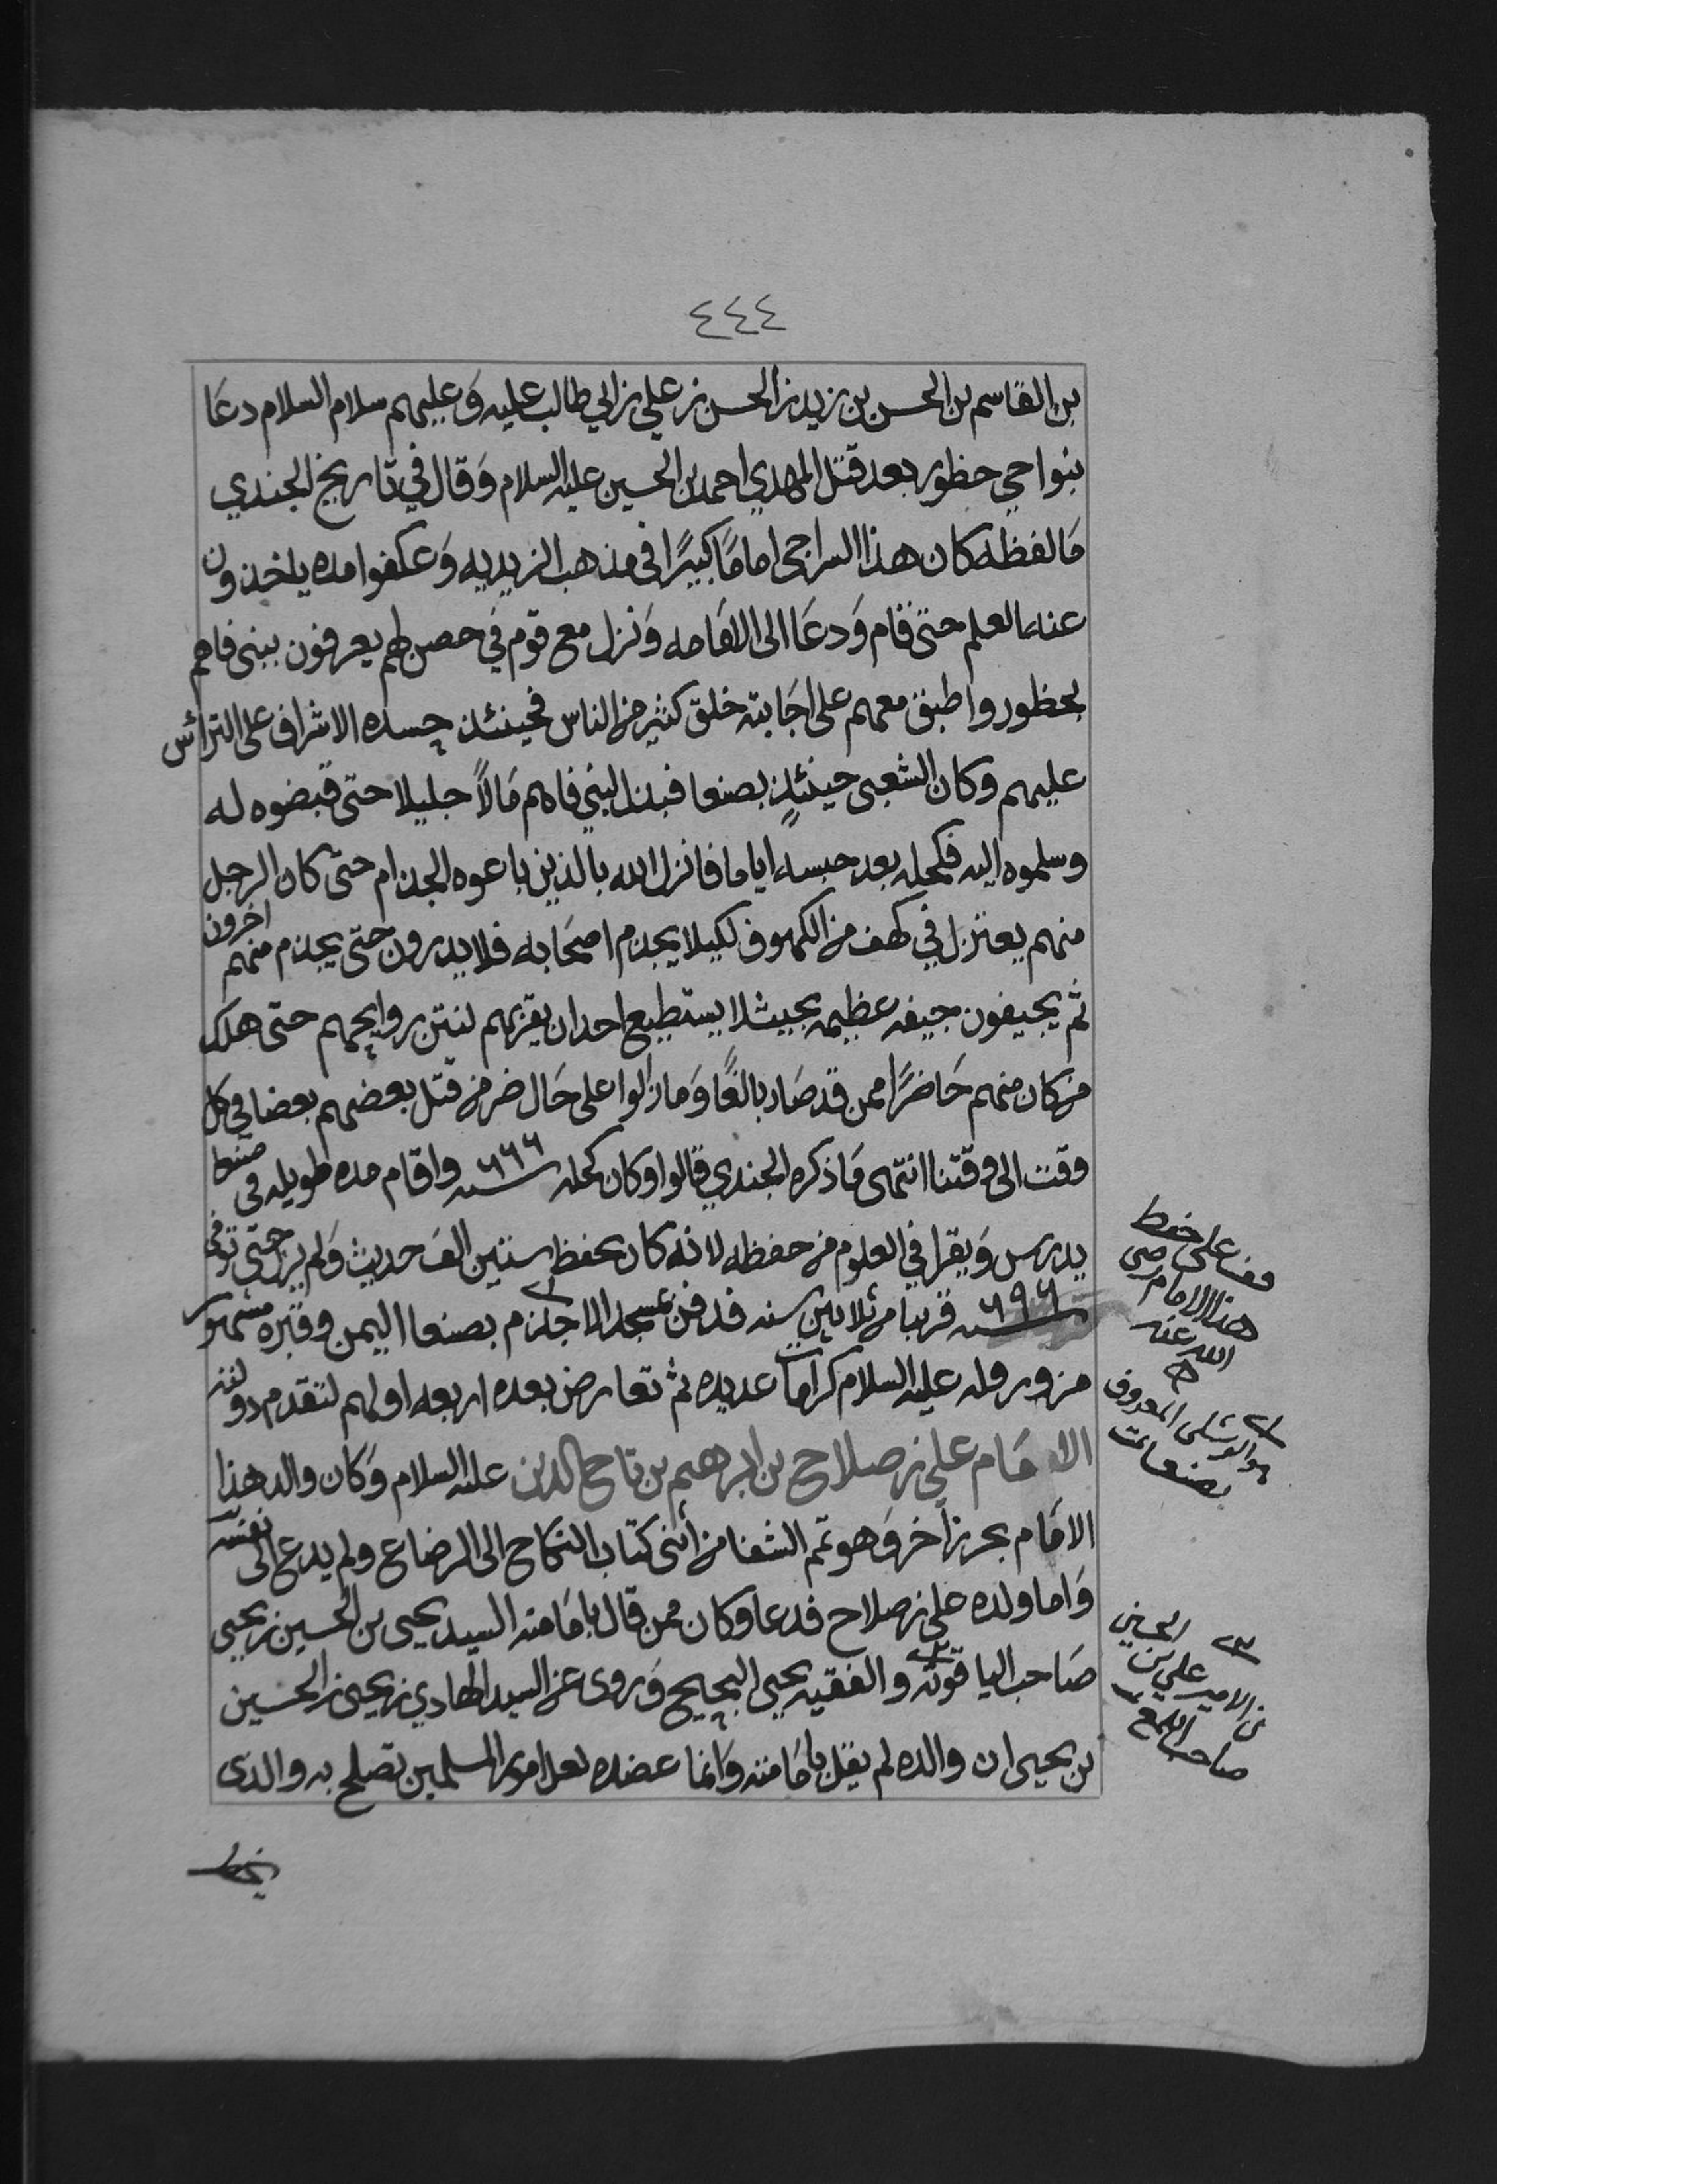 ٤٤٤
بن القاسم بن الحسن بن زيد بن الحسن بن علي بن ابي طالب عليه وَعليهم سلام السلام دعَا
بنواحي حظور بعد قتل المهدي احمد بن الحسين عليه السلام وَقال في تاريخ الجندي
مَا لفظه كان هذا السراجي امامًا كبيرًا في مذهب الزيديه وَعكفوا مده ياخذون
عنه العلم حتى قام وَدعَا الى الامامه وَنزل مع قوم في حصن لهم يعرفون ببني فاهم
بحظور واطبق معهم على اجَابته خلق كثير من الناس فحينئذ حسده الاشراف على التراس
عليهم وكان الشعبي حينئذٍ بصنعا فبذل لبني فاهم مَالاً جليلا حتى قبضوه له
وسلموه اليه فكحله بعد حبسه اياما فانزل الله بالذين باعوه الجذام حتى كان الرجل
منهم يعتزل في كهف من الكهوف لكيلا يجذم اصحَابه فلا يدرون حتى يجذم منهم اخرون
ثم يجيفون جيفه عظيمه بحيث لا يستطيع احد ان يقربهم لنتن روايحهم حتى هلك
من كان منهم حَاضرًا ممن قد صَار بالغًا وَما زالوا على حَال ضر من قتل بعضهم بعضا في كل
وقت الى وقتنا انتهى مَا ذكره الجندي قالوا وكان كحله سنه ٦٦٦ واقام مده طويله في صنعا
يدرس وَيقرا في العلوم من حفظه لانه كان يحفظ ستين الف حديث وَلم يزل حتى توفى
سنه ٦٩٦ قريبا من ثلاثين سنه فدفن بمسجد الاجذم بصنعا اليمن وقبره مشهور
مزور وله عليه السلام كرامات عديده ثم تعارض بعده اربعه اولهم لتقدم دولته
الامَام علي بن صلاح بن ابرهيم بن تاج الدين عليه السلام وَكان والد هذا
الامَام بحرزاخر وَهو تمم الشفا من أثنى كتاب النكاح الى الرضاع ولم يدع الى نفسه
وَاما ولده علي بن صلاح فدعا وكان ممن قال بامَامته السيد يحيى بن الحسين بن يحيى
صَاحب الياقوته والفقيه يحيى البحيح وَروى عن السيد الهادي بن يحيى بن الحسين
بن يحيى ان والده لم يقل بامَامته وَانما عضده لعل امور المسلمين تصلح به والذي
قف على حفظ
هذا الامام رضي
الله عنه
هو الوشلي المعروف
بصنعا
٣ الحسين
بن الامير علي بن
صاحب اللمع